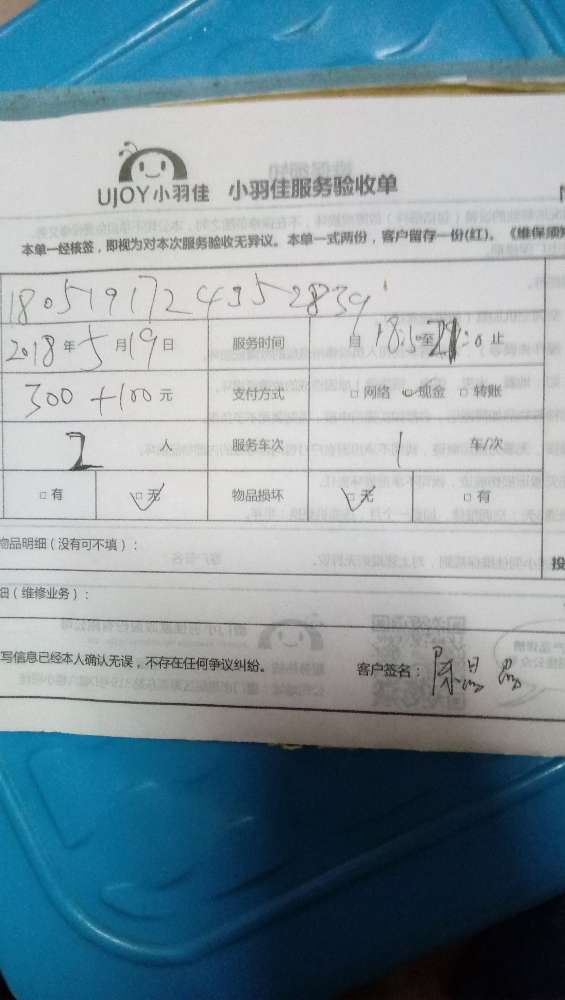 UJOY小羽佳 小羽佳服务验收单
本单一经核签，即视为对本次服务验收无异议。本单一式两份，客户留存一份(红)。《维保须知
1805191724352839
2018年5月19日 服务时间 自18:50至21:0止
300+100元 支付方式 □网络 □现金 □转账
2人 服务车次 1车/次
□有 □无 物品损坏 □无 □有
物品明细（没有可不填）：
细（维修业务）：
写信息已经本人确认无误，不存在任何争议纠纷。 客户签名：